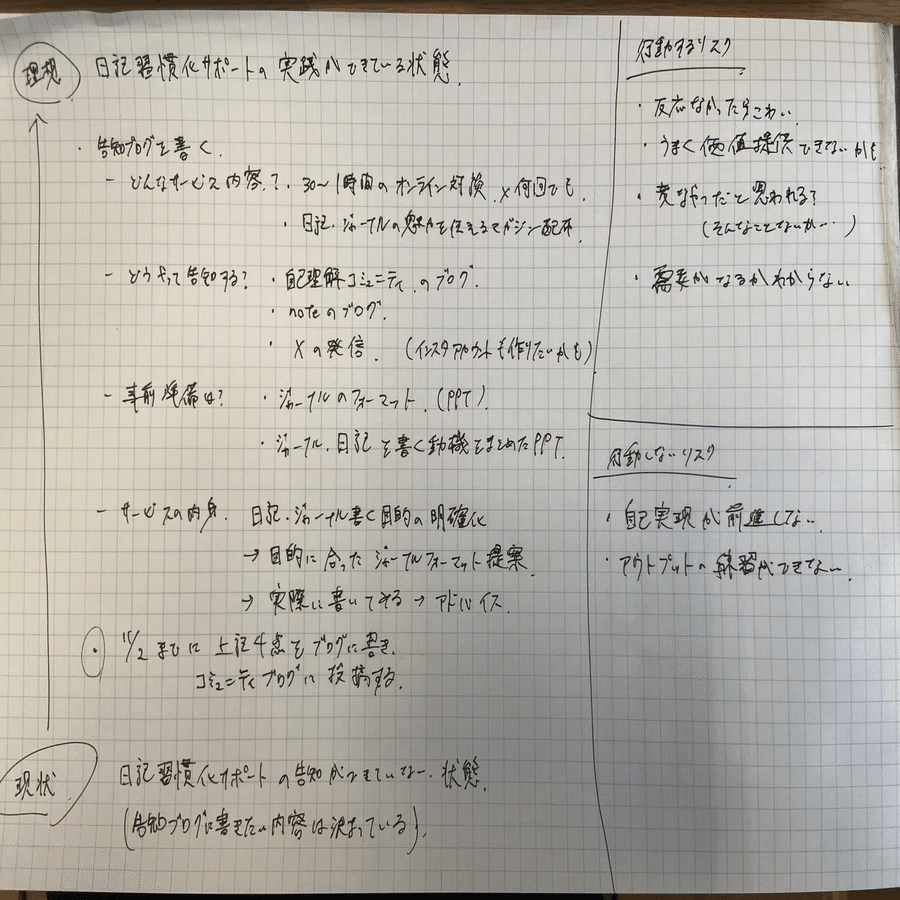 理想
日記習慣化サポートの実践ができている状態
・告知ブログを書く
- どんなサービス内容? ・30〜1時間のオンライン対談 × 何回でも
・日記・ジャーナルの魅力を伝えるマガジン配布
- どうやって告知する? ・自己理解コミュニティのブログ
・noteのブログ
・Xの発信 (インスタアカウントも作りたいかも)
- 事前準備は? ・ジャーナルのフォーマット (PPT)
・ジャーナル、日記を書く動機をまとめたPPT
- サービスの内身 日記・ジャーナル書く目的の明確化
→ 目的に合ったジャーナルフォーマット提案
→ 実際に書いてみる → アドバイス
・11/2までに上記4点をブログに書き、
コミュニティブログに投稿する。
現状
日記習慣化サポートの告知ができていない状態
(告知ブログに書きたい内容は決まっている)
行動するリスク
・反応なかったらこわい
・うまく価値提供できないかも
・変なやつだと思われる?
(そんなことないか…)
・需要があるかわからない
行動しないリスク
・自己実現が前進しない
・アウトプットの練習ができない